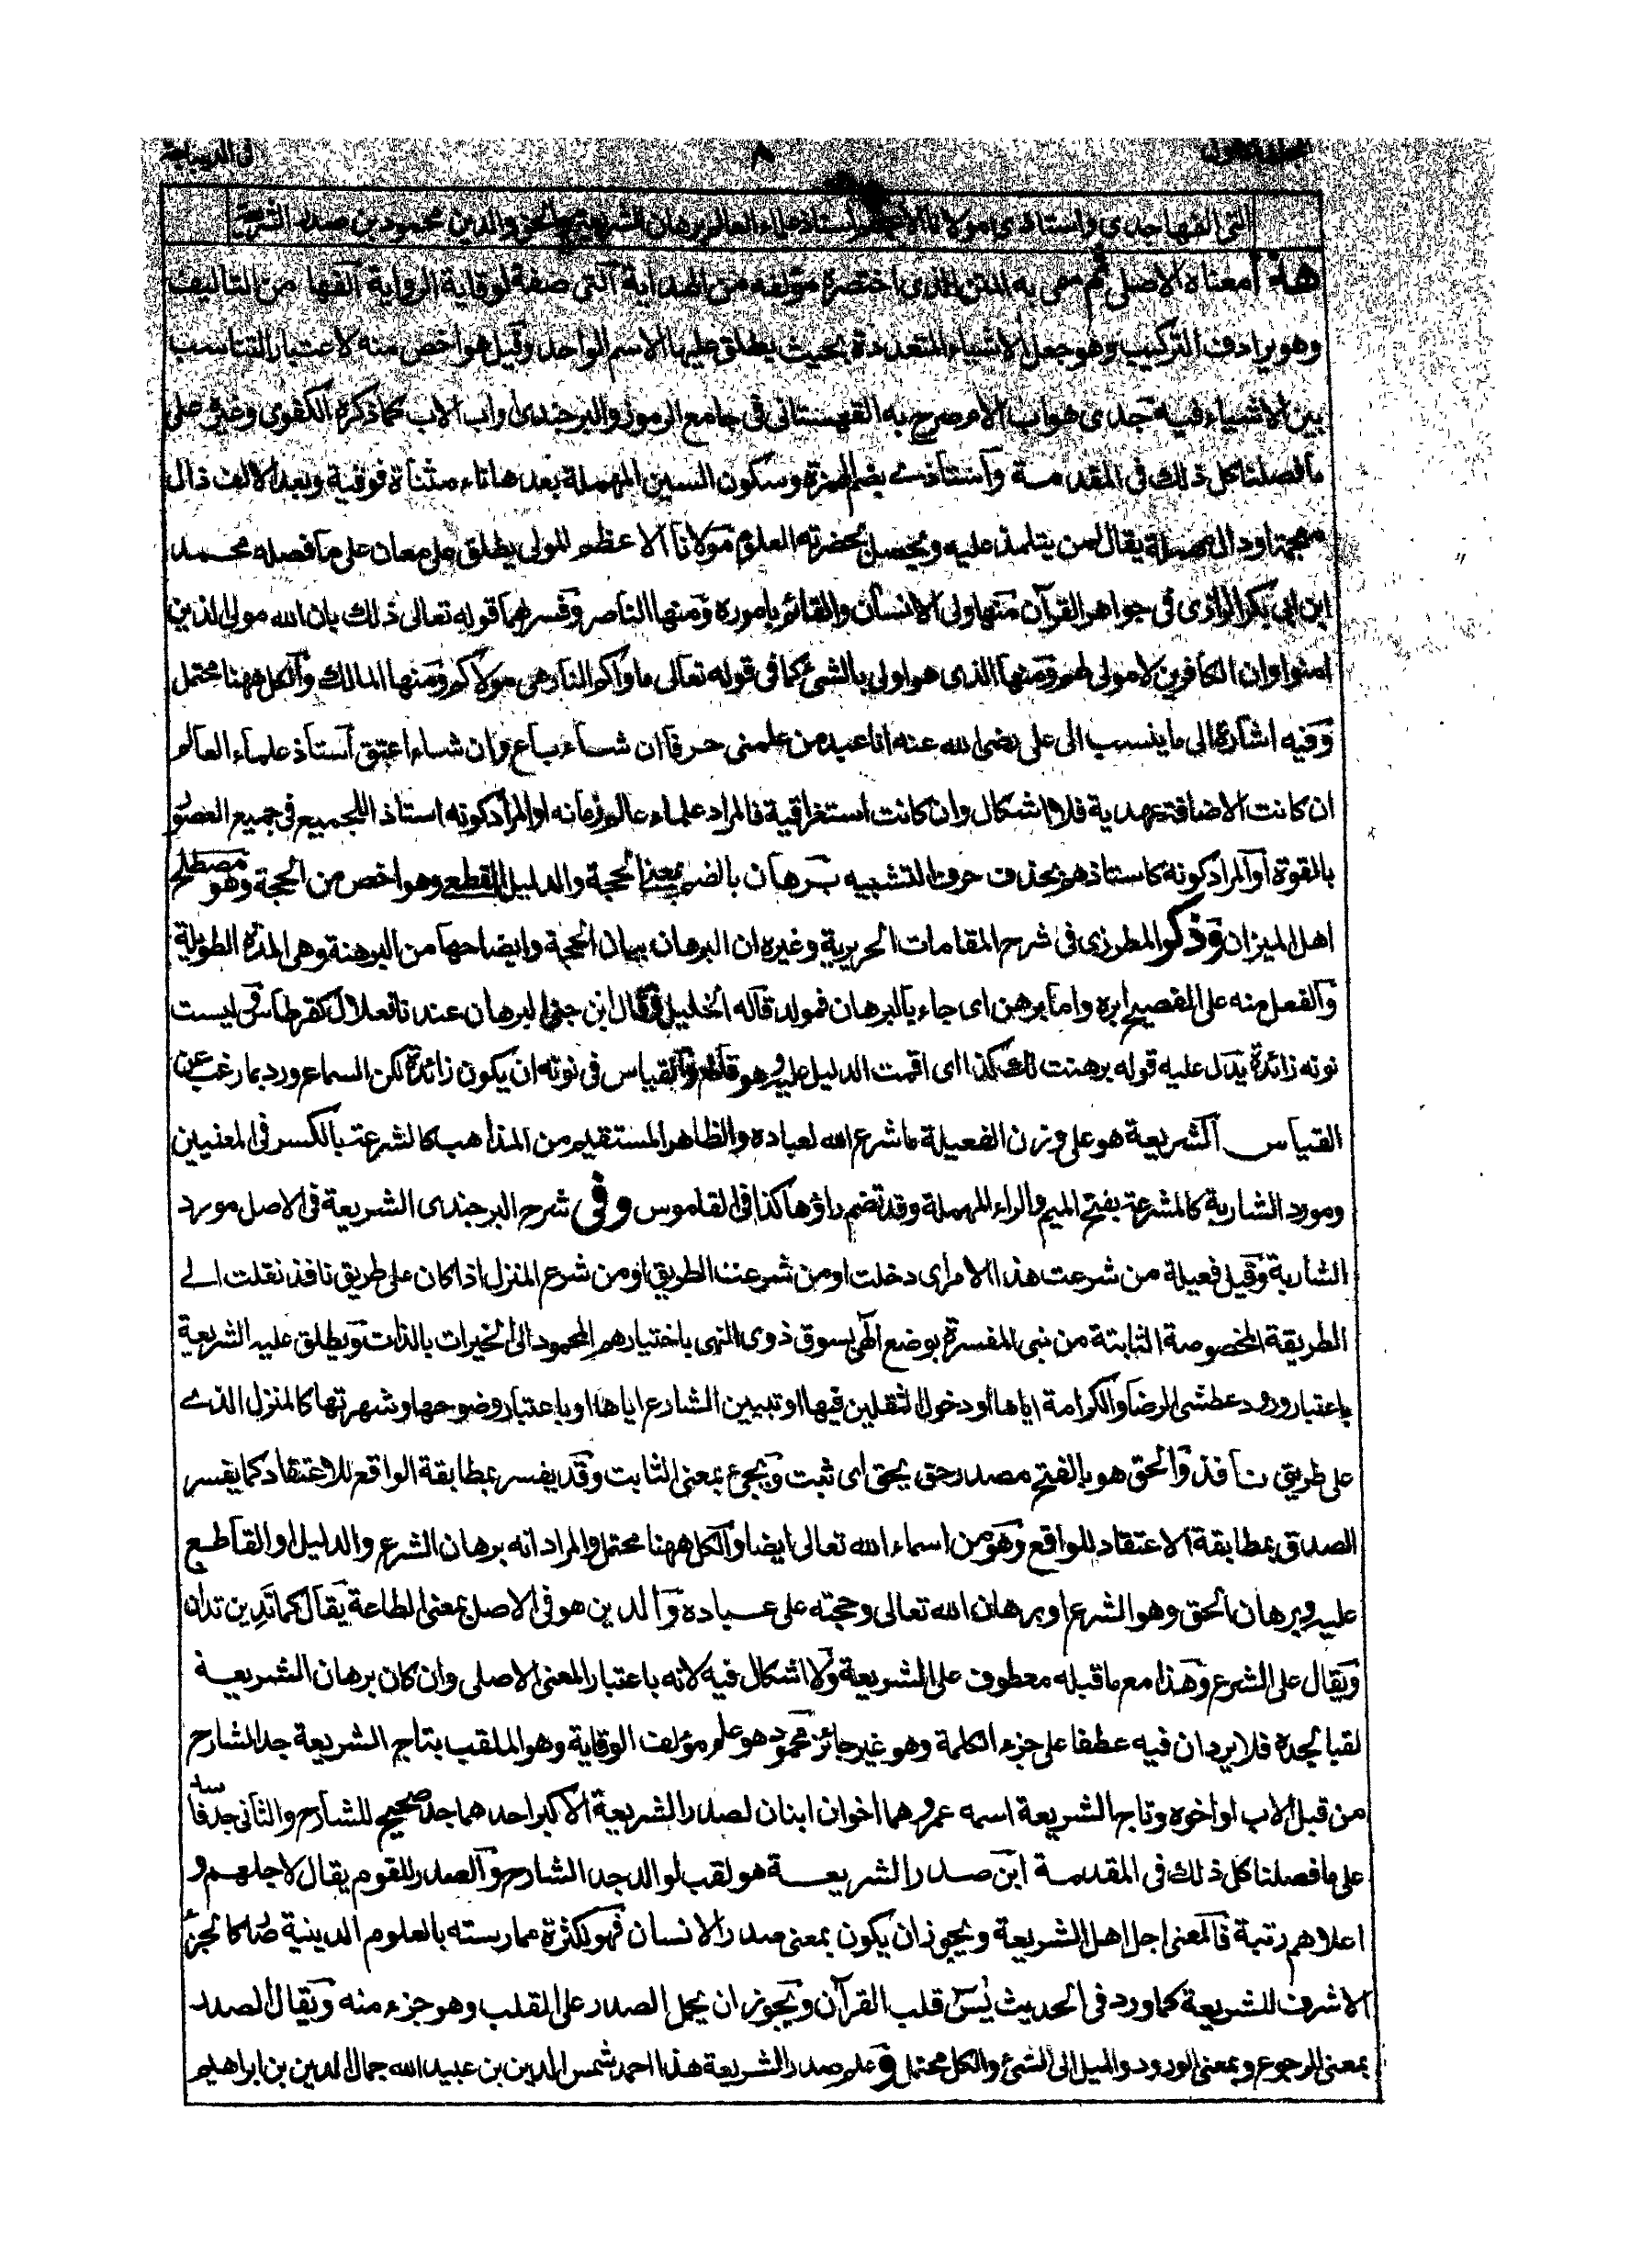 المجلد الاول ٨ فى الديباجة
التى الفها جدى واستاذى مولانا الاعظم استاذ علماء العالم برهان الشريعة والحق والدين محمود بن صدر الشريعة
هذا معناه الاصلى ثم سمى به المتن الذى اختصره مؤلفه من الهداية التى صفة لوقاية الرواية الفها من التاليف
وهو يرادف التركيب وهو جعل الاشياء المتعددة بحيث يطلق عليها الاسم الواحد وقيل هو اخص منه لاعتبار التناسب
بين الاشياء فيه جدى هو اب الام صرح به القهستانى فى جامع الرموز والبرجندى او اب الاب كما ذكره الكفوى وغيره على
ما فصلنا كل ذلك فى المقدمة واستاذى بضم الهمزة وسكون السين المهملة بعدها تاء مثناة فوقية وبعد الالف ذال
معجمة او دال مهملة يقال لمن يتلمذ عليه ويحصل بحضرته العلوم مولانا الاعظم المولى يطلق على معان على ما فصله محمد
ابن ابى بكر الرازى فى جواهر القرآن منها ولى الانسان والقائم باموره ومنها الناصر وفسر بهما قوله تعالى ذلك بان الله مولى الذين
امنوا وان الكافرين لا مولى لهم ومنها الذى هو اولى بالشئ كما فى قوله تعالى ماواكم النار هى مولاكم ومنها المالك والكل ههنا محتمل
وفيه اشارة الى ما ينسب الى على رضى الله عنه انا عبد من علمنى حرفا ان شاء باع وان شاء اعتق استاذ علماء العالم
ان كانت الاضافة عهدية فلا اشكال وان كانت استغراقية فالمراد علماء عالم زمانه او المراد كونه استاذ الجميع فى جميع العصور
بالقوة او المراد كونه كاستاذهم بحذف حرف التشبيه برهان بالضم بمعنى الحجة والدليل القطع وهو اخص من الحجة وهو مصطلح
اهل الميزان وذكر المطرزى فى شرح المقامات الحريرية وغيره ان البرهان بيان الحجة وايضاحها من البرهنة وهى المدة الطويلة
والفعل منه على الفصيح ابره واما برهن اى جاء بالبرهان فمولد قاله الخليل وقال ابن جنى البرهان عندنا فعلال كقرطاس ليست
نونه زائدة يدل عليه قوله برهنت لك كذا اى اقمت الدليل عليه وهو قاطع والقياس فى نونه ان يكون زائدة لكن السماع ورد بما رغب عن
القياس الشريعة هو على وزن الفعيلة ما شرع الله لعباده والظاهر المستقيم من المذاهب كالشرعة بالكسر فى المعنيين
ومورد الشاربة كالمشرعة بفتح الميم والراء المهملة وقد تضم راؤها كذا فى القاموس وفى شرح البرجندى الشريعة فى الاصل مورد
الشاربة وقيل فعيلة من شرعت هذا الامر اى دخلت او من شرعت الطريق او من شرع المنزل اذا كان على طريق نافذ نقلت الى
الطريقة المخصوصة الثابتة من نبى المفسرة بوضع الهى بسوق ذوى النهى باختيارهم المحمود الى الخيرات بالذات ويطلق عليه الشريعة
باعتبار ورود عطشى الرضا والكرامة اياها او دخول الثقلين فيها او تبيين الشارع اياها او باعتبار وضوحها وشهرتها كالمنزل الذى
على طريق نافذ والحق هو بالفتح مصدر حق يحق اى ثبت ويجئ بمعنى الثابت وقد يفسر بمطابقة الواقع للاعتقاد كما يفسر
الصدق بمطابقة الاعتقاد للواقع وهو من اسماء الله تعالى ايضا والكل ههنا محتمل والمراد انه برهان الشرع والدليل او القاطع
عليه وبرهان الحق وهو الشرع او برهان الله تعالى وحجته على عباده والدين هو فى الاصل بمعنى الطاعة يقال كما تدين تدان
ويقال على الشرع وهذا مع ما قبله معطوف على الشريعة ولا اشكال فيه لانه باعتبار المعنى الاصلى وان كان برهان الشريعة
لقبا لجده فلا يرد ان فيه عطفا على جزء الكلمة وهو غير جائز محمود هو علم مؤلف الوقاية وهو الملقب بتاج الشريعة جد الشارح
من قبل الاب او اخوه وتاج الشريعة اسمه عمر وهما اخوان ابنان لصدر الشريعة الاكبر احدهما جد صحيح للشارح والثانى جد فاسد
على ما فصلنا كل ذلك فى المقدمة ابن صدر الشريعة هو لقب لوالد جد الشارح والصدر للقوم يقال لاجلهم و
اعلاهم رتبة فالمعنى اجل اهل الشريعة ويجوز ان يكون بمعنى صدر الانسان فهو لكثرة ممارسته بالعلوم الدينية صار كالجزء
الاشرف للشريعة كما ورد فى الحديث يس قلب القرآن ويجوز ان يحمل الصدر على القلب وهو جزء منه ويقال الصدر
بمعنى الرجوع وبمعنى الورود والميل الى الشئ والكل محتمل وعلم صدر الشريعة هذا احمد شمس الدين بن عبيد الله جمال الدين بن ابراهيم